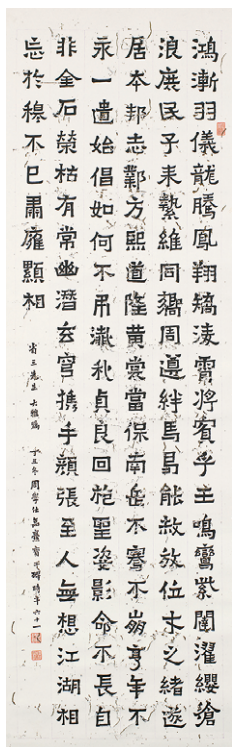 鴻漸羽儀龍騰鳳翔矯淩霄將賓乎王鳴鸞紫闥濯纓滄
浪展民子來縶維同周遵絆馬曷能赦放位之緒遂
居本邦志方熙道隆黄裳當保南岳不騫不崩享年不
永一遺始倡如何不弔秋貞良回抱聖姿影命不長自
非金石榮枯有常幽潛玄穹携手顏張至人無想江湖相
忘於穆不已肅雍顯相
省三先生 大雅屬 丁丑冬 周學仕 時年六十一